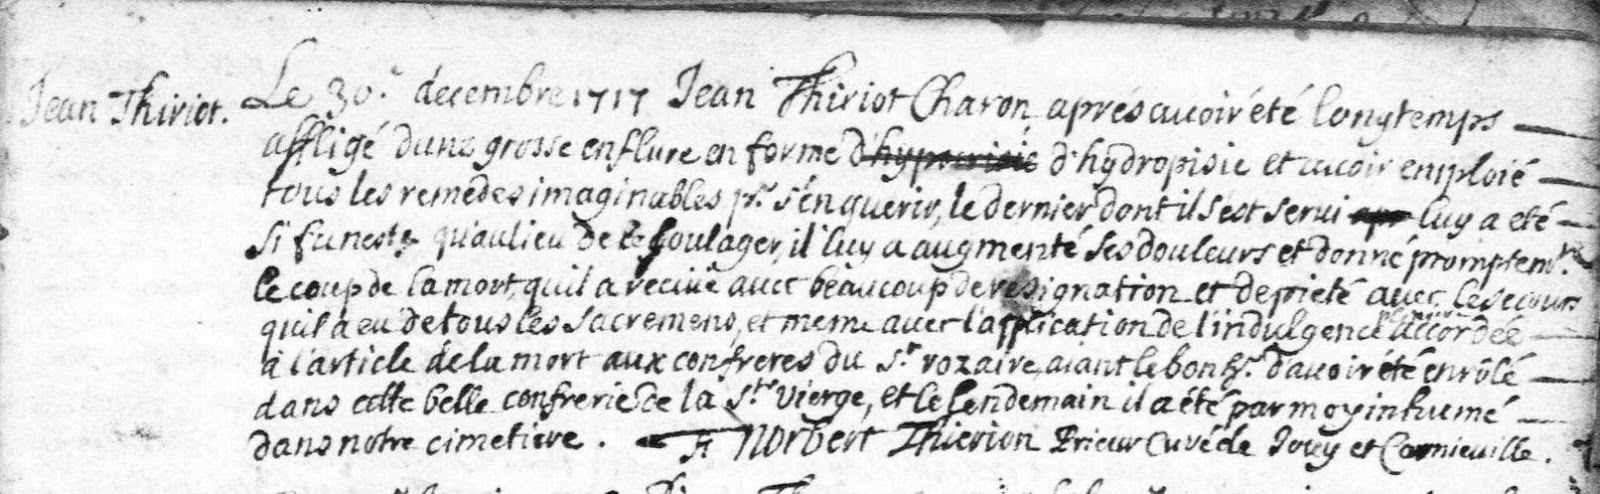 Jean Thiriot. Le 30.e decembre 1717 Jean Thiriot Charon après avoir été longtemps
affligé dune grosse enflure en forme d'hypocrisie d'hydropisie et avoir emploié
tous les remédes imaginables pr. s'en querir, le dernier dont il s'est servi luy a eté
si funeste qu'au lieu de le soulager, il luy a augmenté ses douleurs et donné promptemt.
le coup de la mort, quil a reciüe avec beaucoup de résignation et de pieté avec le secours
quil a eu de tous les sacremens, et meme avec l'application de l'indulgence pleniere accordée
a l'article de la mort aux confreres du St. rozaire, aiant le bonhr. d'avoir été enrôlé
dans cette belle confrerie de la Ste vierge, et le lendemain il a été par moy inhumé
dans notre cimetiere. F Norbert Thierion Prieur Curé de Jouy et Cornieville.